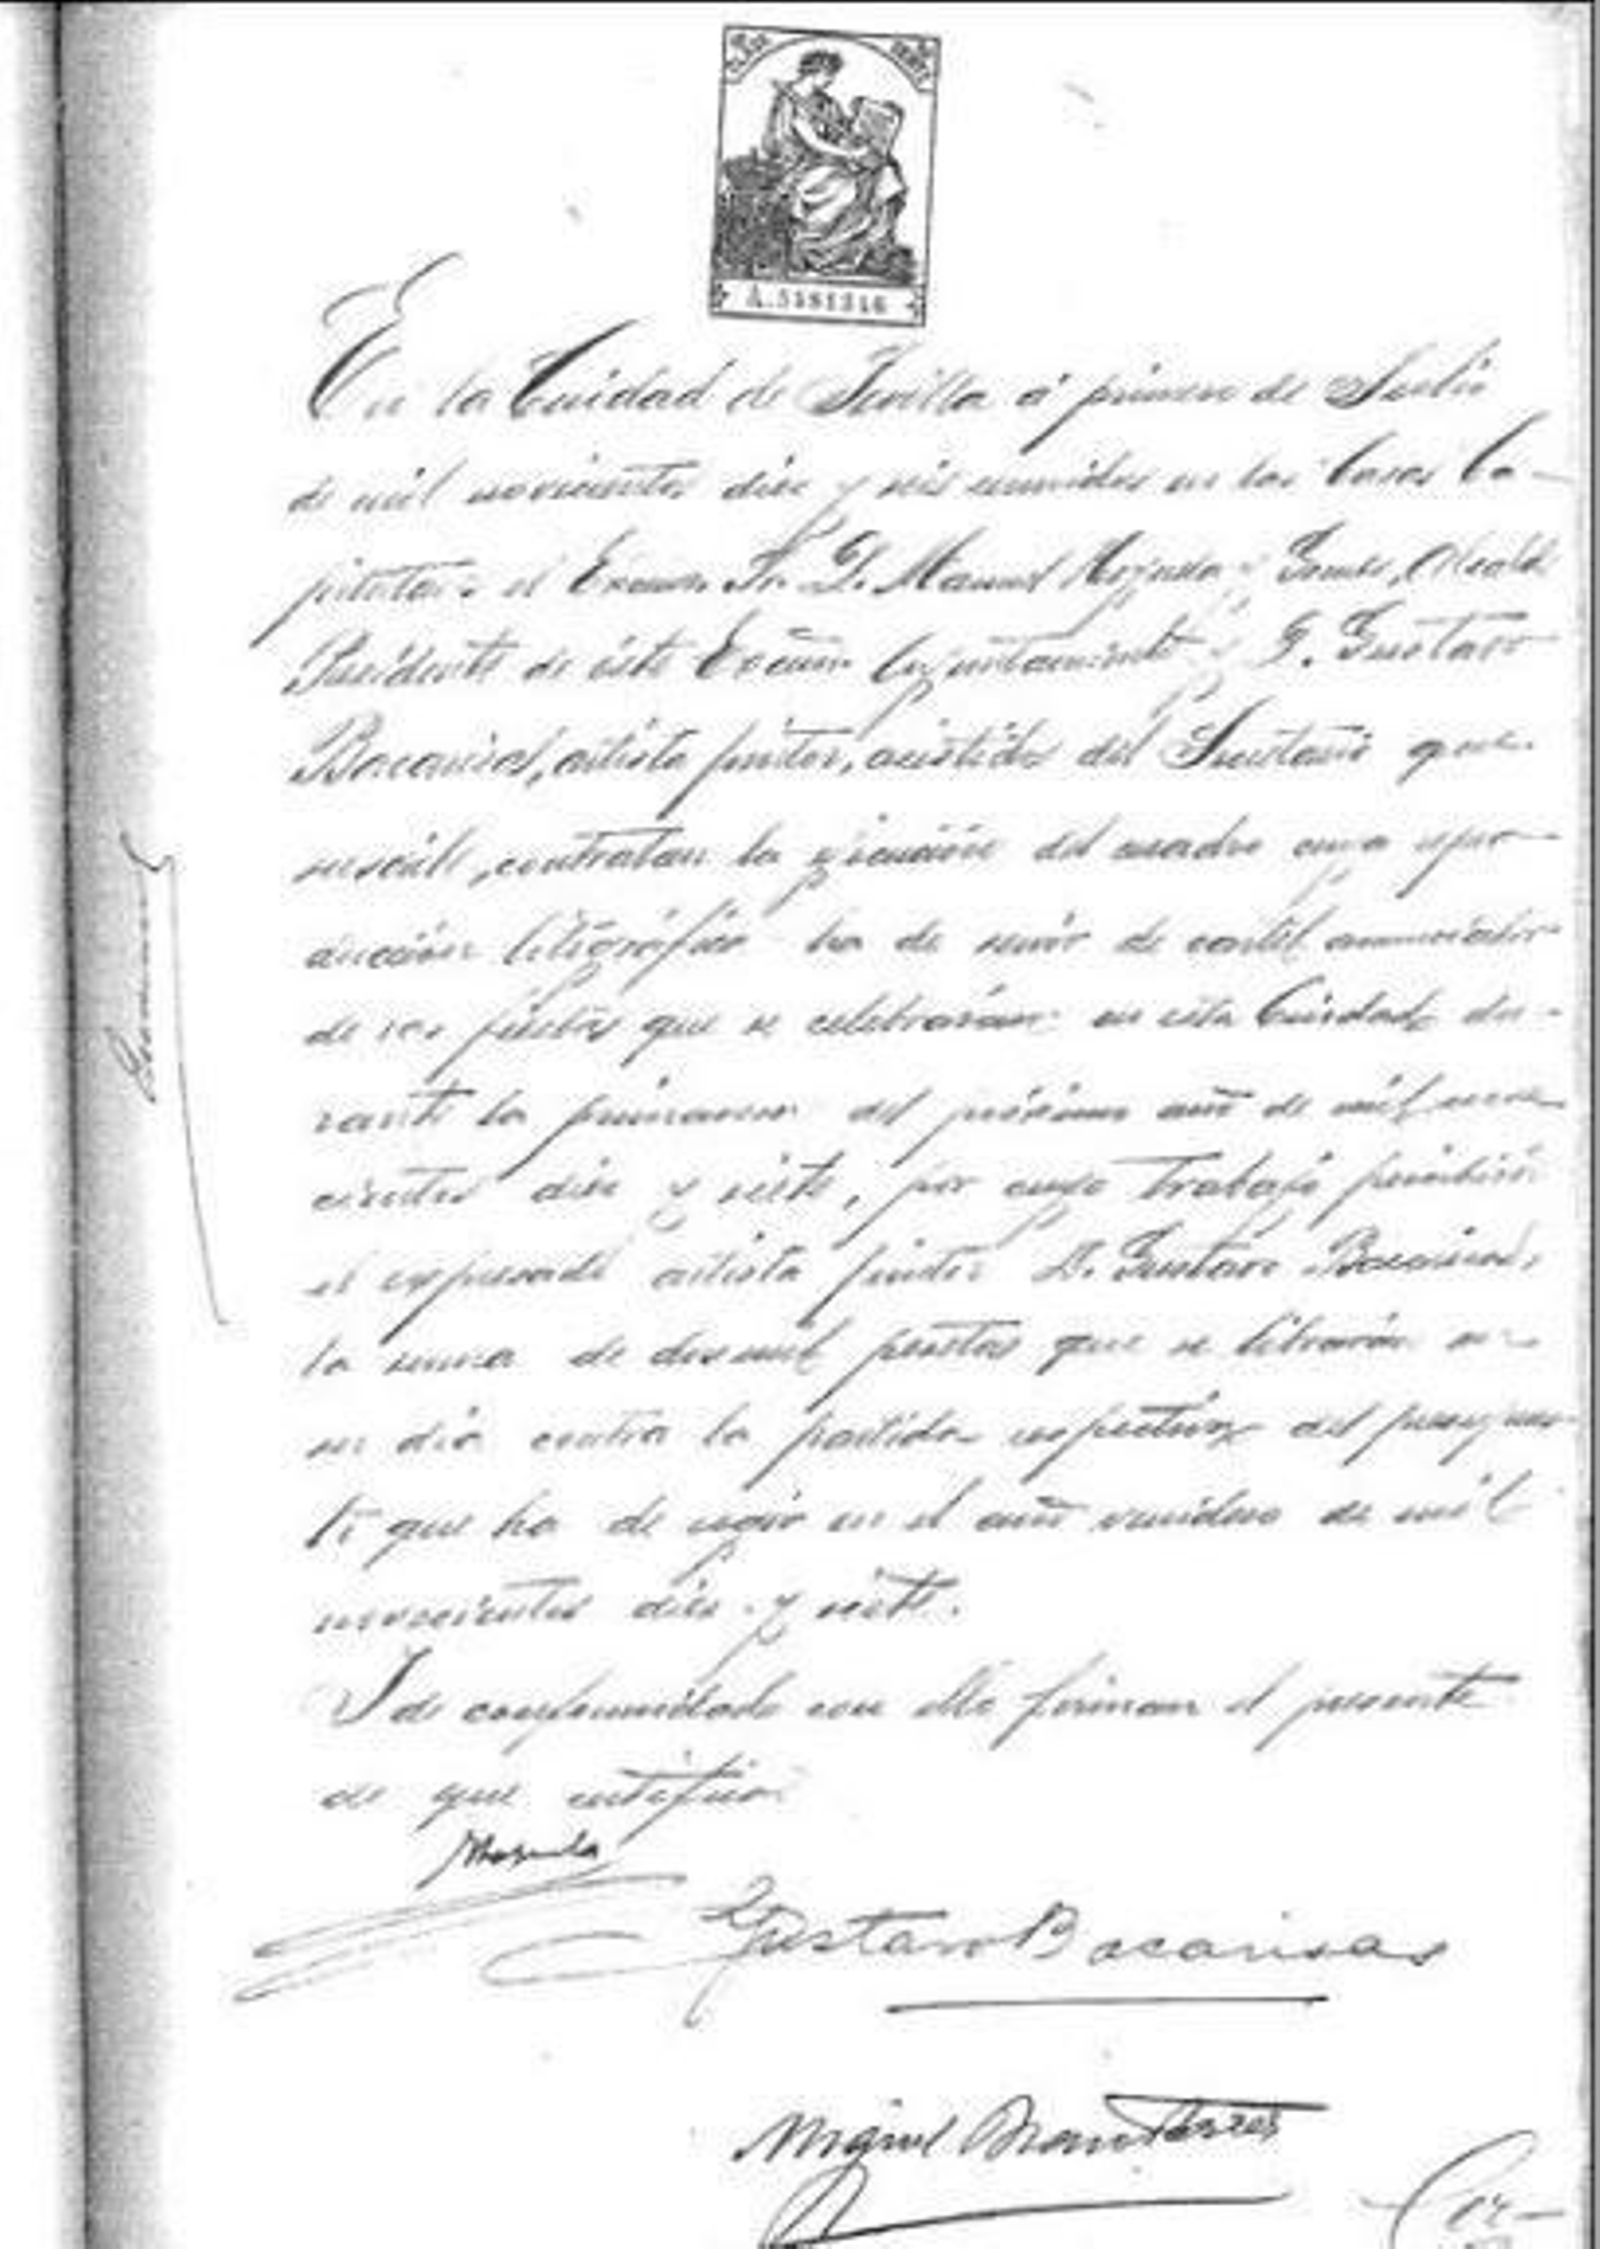 A.5181316
En la Cuidad de Sevilla á primero de Julio
de mil novecientos diez y seis reunidos en las Casas Ca-
pitulares el Excmo. Sr. D. Manuel Hoyuela y Gomez, Alcalde
Presidente de éste Excmo. Ayuntamiento y D. Gustavo
Bacarisas, artista pintor, asistidos del Secretario que
suscribe, contratan la ejecución del cuadro cuya repro-
ducción litográfica ha de servir de cartel anunciador
de las fiestas que se celebrarán en esta Cuidad du-
rante la primavera del próximo año de mil nove
cientos diez y siete, por cuyo trabajo percibirá
el expresado artista pintor D. Gustavo Bacarisas,
la suma de dos mil pesetas que se librarán en
su día contra la partida respectiva del presupues-
to que ha de regir en el año venidero de mil
novecientos diez y siete.
Y de conformidad con ello firman el presente
de que certifico.
Gustavo Bacarisas
Miguel Bravo